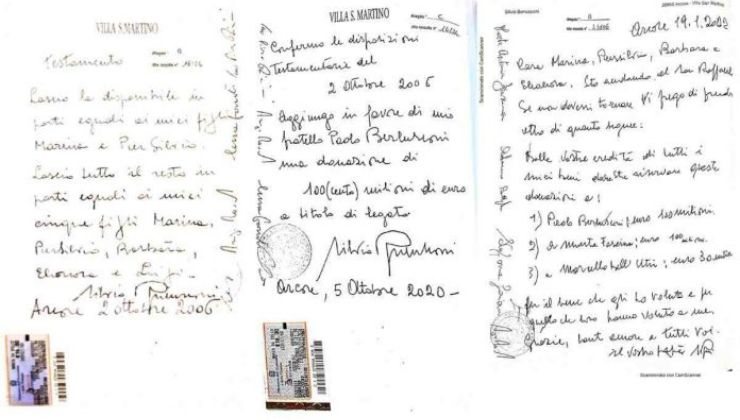 VILLA S. MARTINO
Allegato " A "
Testamento
Lascio la disponibile in
parti eguali ai miei figli
Marina e Pier Silvio.
Lascio tutto il resto in
parti eguali ai miei
cinque figli Marina,
Piersilvio, Barbara,
Eleonora e Luigi.
Silvio Berlusconi
Arcore 2 ottobre 2006
VILLA S. MARTINO
Allegato " C "
Confermo le disposizioni
testamentarie del
2 Ottobre 2006
Aggiungo in favore di mio
fratello Paolo Berlusconi
una donazione di
100 (cento) milioni di euro
a titolo di legato
Silvio Berlusconi
Arcore, 5 Ottobre 2020 -
Silvio Berlusconi
Arcore 19.1.2022
Cara Marina, Piersilvio, Barbara e
Eleonora, Sto andando al San Raffaele
Se non dovessi tornare Vi prego di prendere
atto di quanto segue:
Dalle Vostre eredità di tutti i
miei beni dovreste riservare queste
donazioni a:
1) Paolo Berlusconi euro milioni.
2) a Marta Fascina; euro 100
3) a Marcello Dell'Utri; euro 30
per il bene che gli ho voluto e per
quello che loro hanno voluto a me.
Grazie, tanto amore a tutti Voi.
il Vostro papà
Scansionato con CamScanner
Scansionato con CamScanner